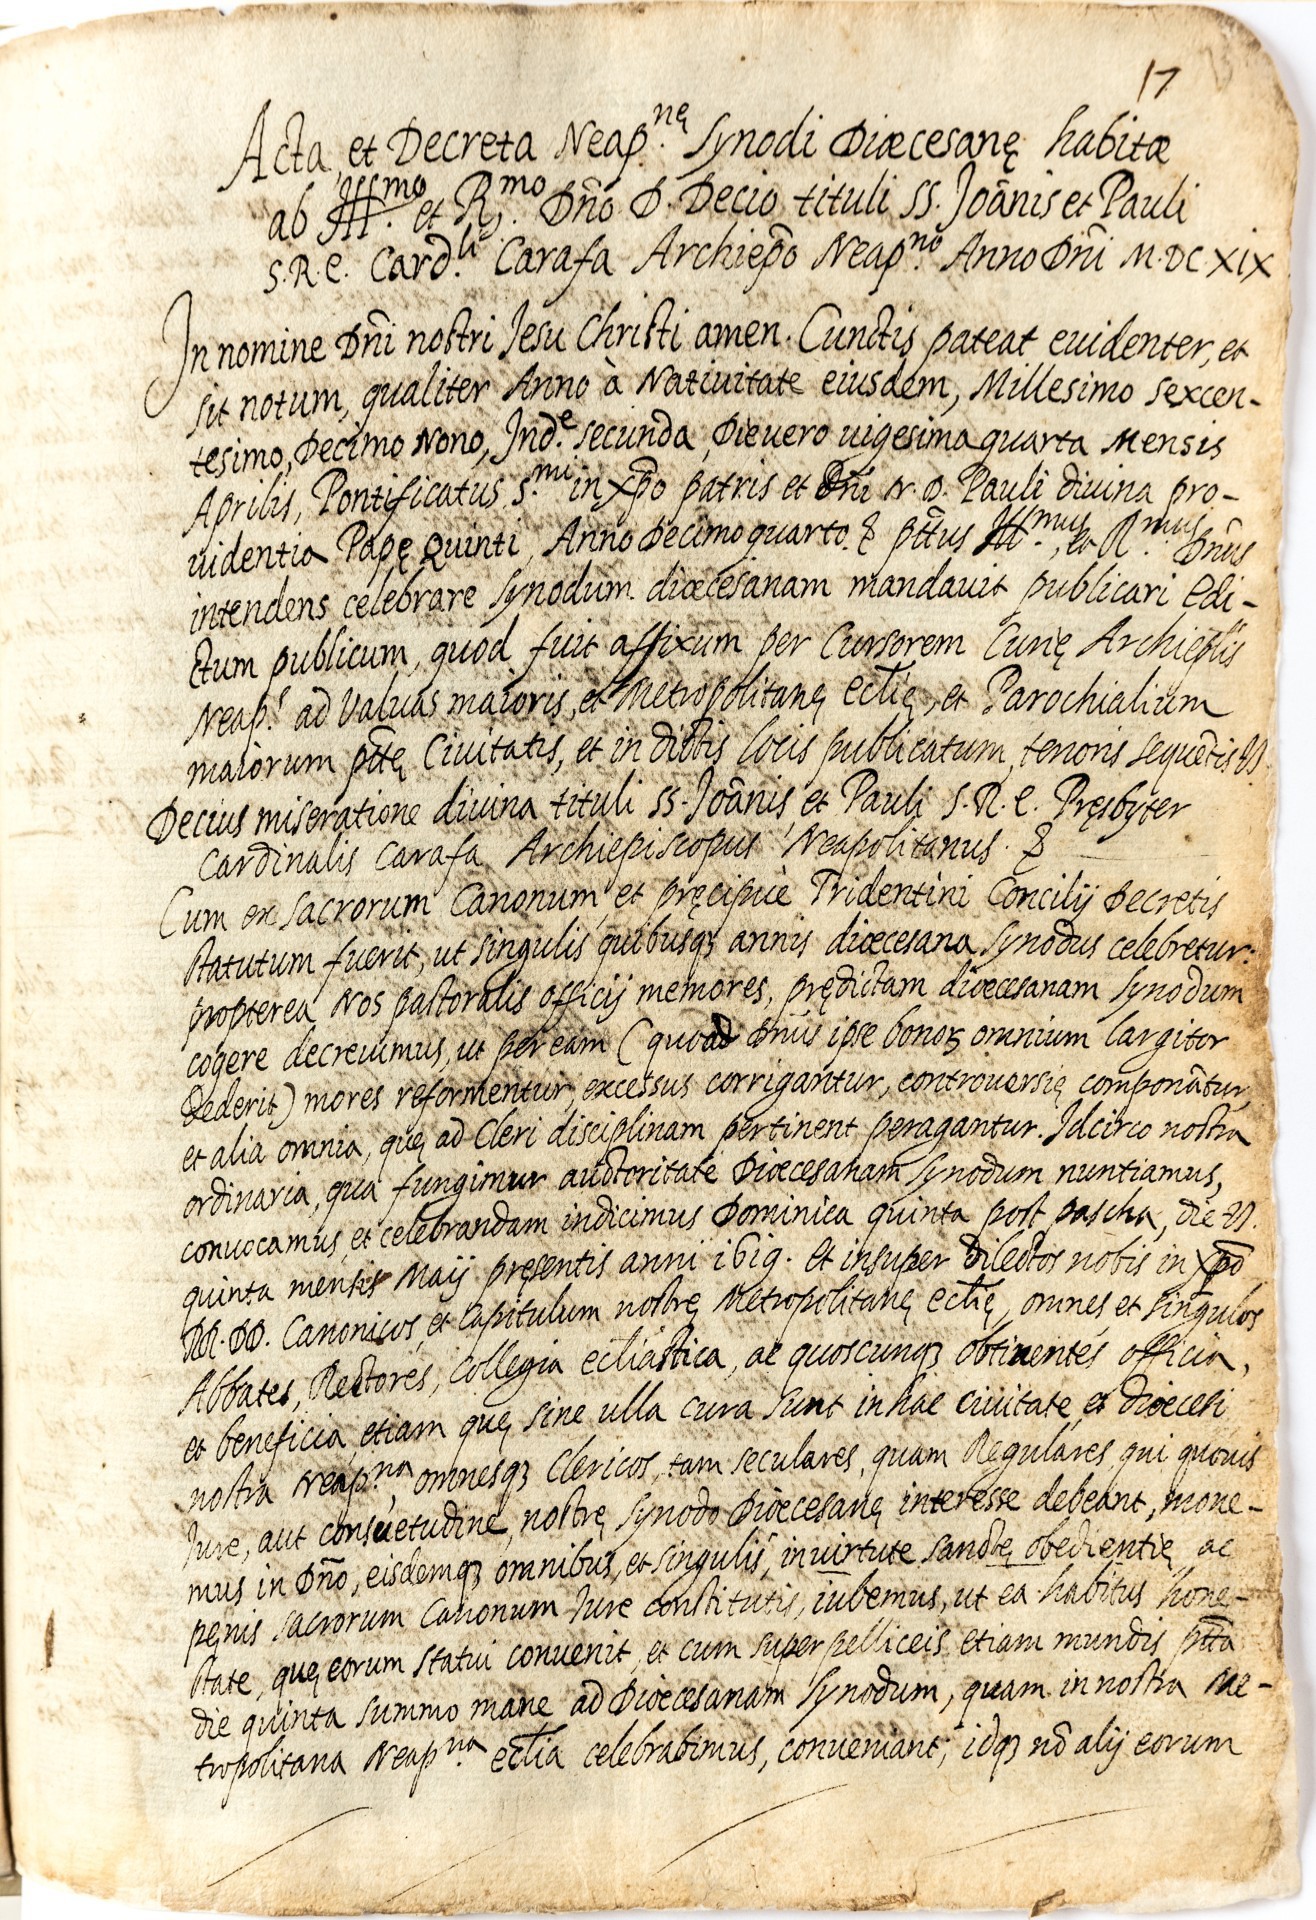 17
Acta, et Decreta Neap.nę Synodi Diœcesanę habitæ
ab Ill.mo et R.mo Dn̄o D. Decio tituli SS. Joān̄is et Pauli
S.R.E. Card.li Carafa Archiep̄o Neap.no Anno Dn̄i M.DC.XIX
In nomine Dn̄i nostri Jesu Christi amen. Cunctis pateat euidenter, et
sit notum, qualiter Anno à Natiuitate eiusdem, Millesimo sexcen-
tesimo, Decimo Nono, Ind.e secunda, Die uero uigesima quarta Mensis
Aprilis, Pontificatus S.mi in Xp̄o patris et Dn̄i N. D. Pauli diuina pro-
uidentia Papę Quinti, Anno Decimo quarto. p̄ttus Ill.mus, et R.mus Dn̄us
intendens celebrare Synodum diœcesanam mandauit publicari Edi-
ctum publicum, quod fuit affixum per Cursorem Curię Archiep̄lis
Neap.s ad Valuas maioris, et Metropolitanę Eccl̄ię, et Parochialium
maiorum p̄ttę Ciuitatis, et in dictis locis publicatum, tenoris sequētis
Decius miseratione diuina tituli SS. Joān̄is et Pauli S.R.E. Pręsbyter
Cardinalis Carafa Archiepiscopus Neapolitanus.
Cum ex Sacrorum Canonum, et pręcipuè Tridentini Concilij Decretis
statutum fuerit, ut singulis quibusqꝫ annis diœcesana Synodus celebretur:
propterea Nos pastoralis officij memores, prędictam diœcesanam Synodum
cogere decreuimus, ut per eam (quoad Dn̄us ipse bonoꝝ omnium largitor
Dederit) mores reformentur, excessus corrigantur, controuersię componātur,
et alia omnia, quę ad Cleri disciplinam pertinent peragantur. Idcirco nostra
ordinaria, qua fungimur auctoritate Diœcesanam Synodum nuntiamus,
conuocamus, et celebrandam indicimus Dominica quinta post pascha, die
quinta mensis Maij pręsentis anni 1619. Et insuper Dilectos nobis in Xp̄o
RR. DD. Canonicos, et Capitulum nostrę Metropolitanę Eccl̄ię, omnes et singulos
Abbates, Rectores, Collegia eccl̄iastica, ac quoscunqꝫ obtinentes officia,
et beneficia, etiam quę sine ulla cura sunt in hac ciuitate, et diœcesi
nostra Neap.na, omnesqꝫ Clericos, tam seculares, quam Regulares qui quouis
Jure, aut consuetudine, nostrę Synodo Diœcesanę interesse debeant, mone-
mus in Dn̄o, eisdemqꝫ omnibus, et singulis, in uirtute sanctę obedientię ac
pęnis Sacrorum Canonum Jure constitutis, iubemus, ut ea habitus hone-
state, quę eorum statui conuenit, et cum superpelliceis etiam mundis p̄tta
die quinta summo mane ad Diœcesanam Synodum, quam in nostra Me-
tropolitana Neap.na eccl̄ia celebrabimus, conueniant; idqꝫ nō alij eorum